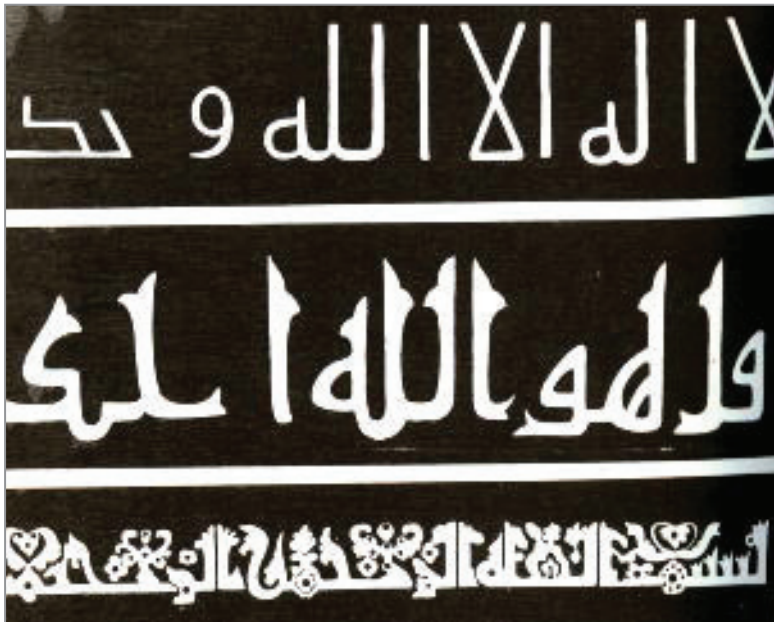 لا اله الا الله وحد
قل هو الله احد
بسم الله الرحمن الرحيم